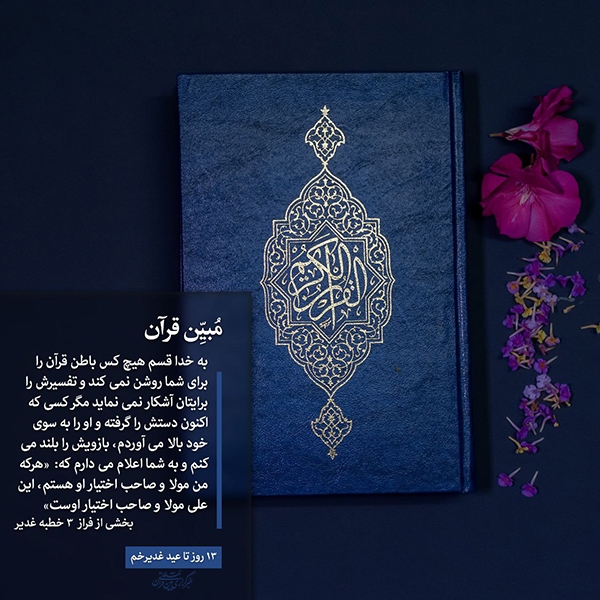 القرآن الكريم
مُبیّن قرآن
به خدا قسم هیچ کس باطن قرآن را
برای شما روشن نمی کند و تفسیرش را
برایتان آشکار نمی نماید مگر کسی که
اکنون دستش را گرفته و او را به سوی
خود بالا می آوردم، بازویش را بلند می
کنم و به شما اعلام می دارم که: «هرکه
من مولا و صاحب اختیار او هستم، این
علی مولا و صاحب اختیار اوست»
بخشی از فراز ۳ خطبه غدیر
۱۳ روز تا عید غدیرخم